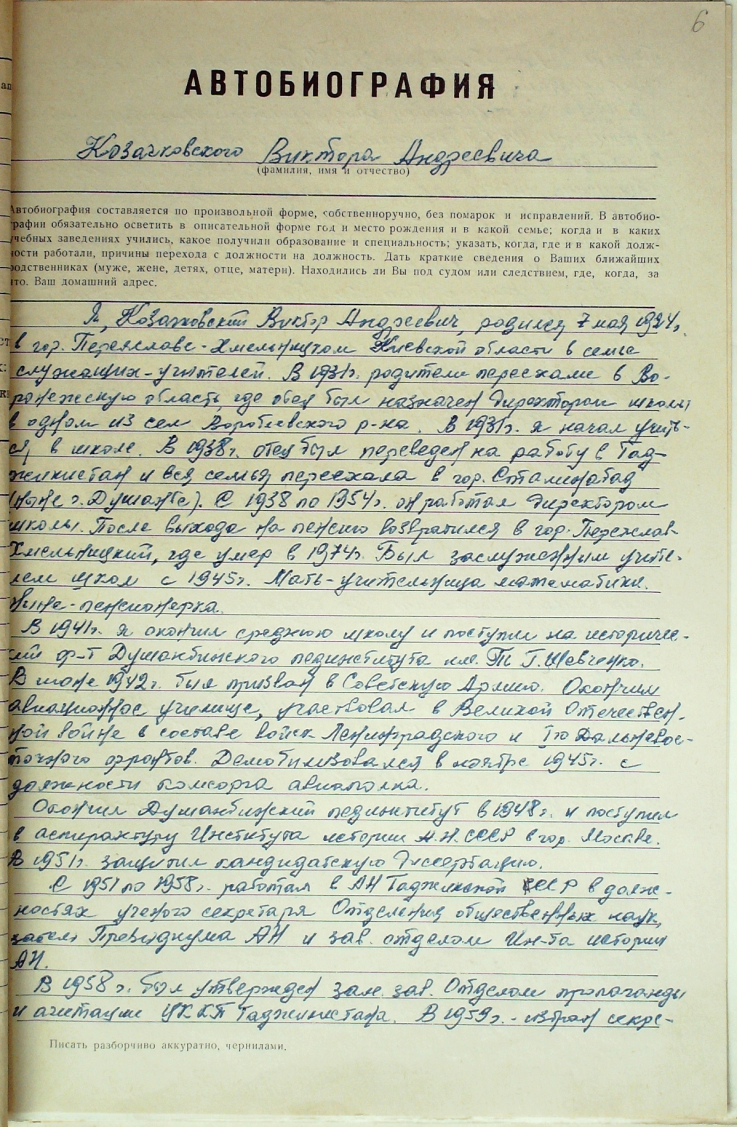 6
АВТОБИОГРАФИЯ
Козачковского Виктора Андреевича
(фамилия, имя и отчество)
Автобиография составляется по произвольной форме, собственноручно, без помарок и исправлений. В автобио-
графии обязательно осветить в описательной форме год и место рождения и в какой семье; когда и в каких
учебных заведениях учились, какое получили образование и специальность; указать, когда, где и в какой долж-
ности работали, причины перехода с должности на должность. Дать краткие сведения о Ваших ближайших
родственниках (муже, жене, детях, отце, матери). Находились ли Вы под судом или следствием, где, когда, за
что. Ваш домашний адрес.
Я, Козачковский Виктор Андреевич, родился 7 мая 1924 г.
в гор. Переяславе-Хмельницком Киевской области в семье
служащих-учителей. В 1931 г. родители переехали в Во-
ронежскую область, где отец был назначен директором школы
в одном из сел Воробьевского р-на. В 1931 г. я начал учить-
ся в школе. В 1938 г. отец был переведен на работу в Тад-
жикистан и вся семья переехала в гор. Сталинабад
(ныне г. Душанбе). С 1938 по 1954 г. он работал директором
школы. После выхода на пенсию возвратился в гор. Переяслав-
Хмельницкий, где умер в 1974 г. Был заслуженным учите-
лем школ с 1945 г. Мать-учительница математики.
ныне-пенсионерка.
В 1941 г. я окончил среднюю школу и поступил на историчес-
кий ф-т Душанбинского пединститута им. Т. Г. Шевченко.
В июне 1942 г. был призван в Советскую Армию. Окончил
авиационное училище, участвовал в Великой Отечествен-
ной войне в составе войск Ленинградского и I-го Дальневос-
точного фронтов. Демобилизовался в ноябре 1945 г. с
должности комсорга авиаполка.
Окончил Душанбинский пединститут в 1948 г. и поступил
в аспирантуру Института истории А.Н. СССР в гор. Москве.
В 1951 г. защитил кандидатскую диссертацию.
С 1951 по 1958 г. работал в АН Таджикской ССР в долж-
ностях ученого секретаря Отделения общественных наук,
Президиума АН и зав. отделом Ин-та истории
АН.
В 1958 г. был утвержден зам. зав. Отделом пропаганды
и агитации ЦК КП Таджикистана. В 1959 г. - избран секре-
Писать разборчиво аккуратно, чернилами.